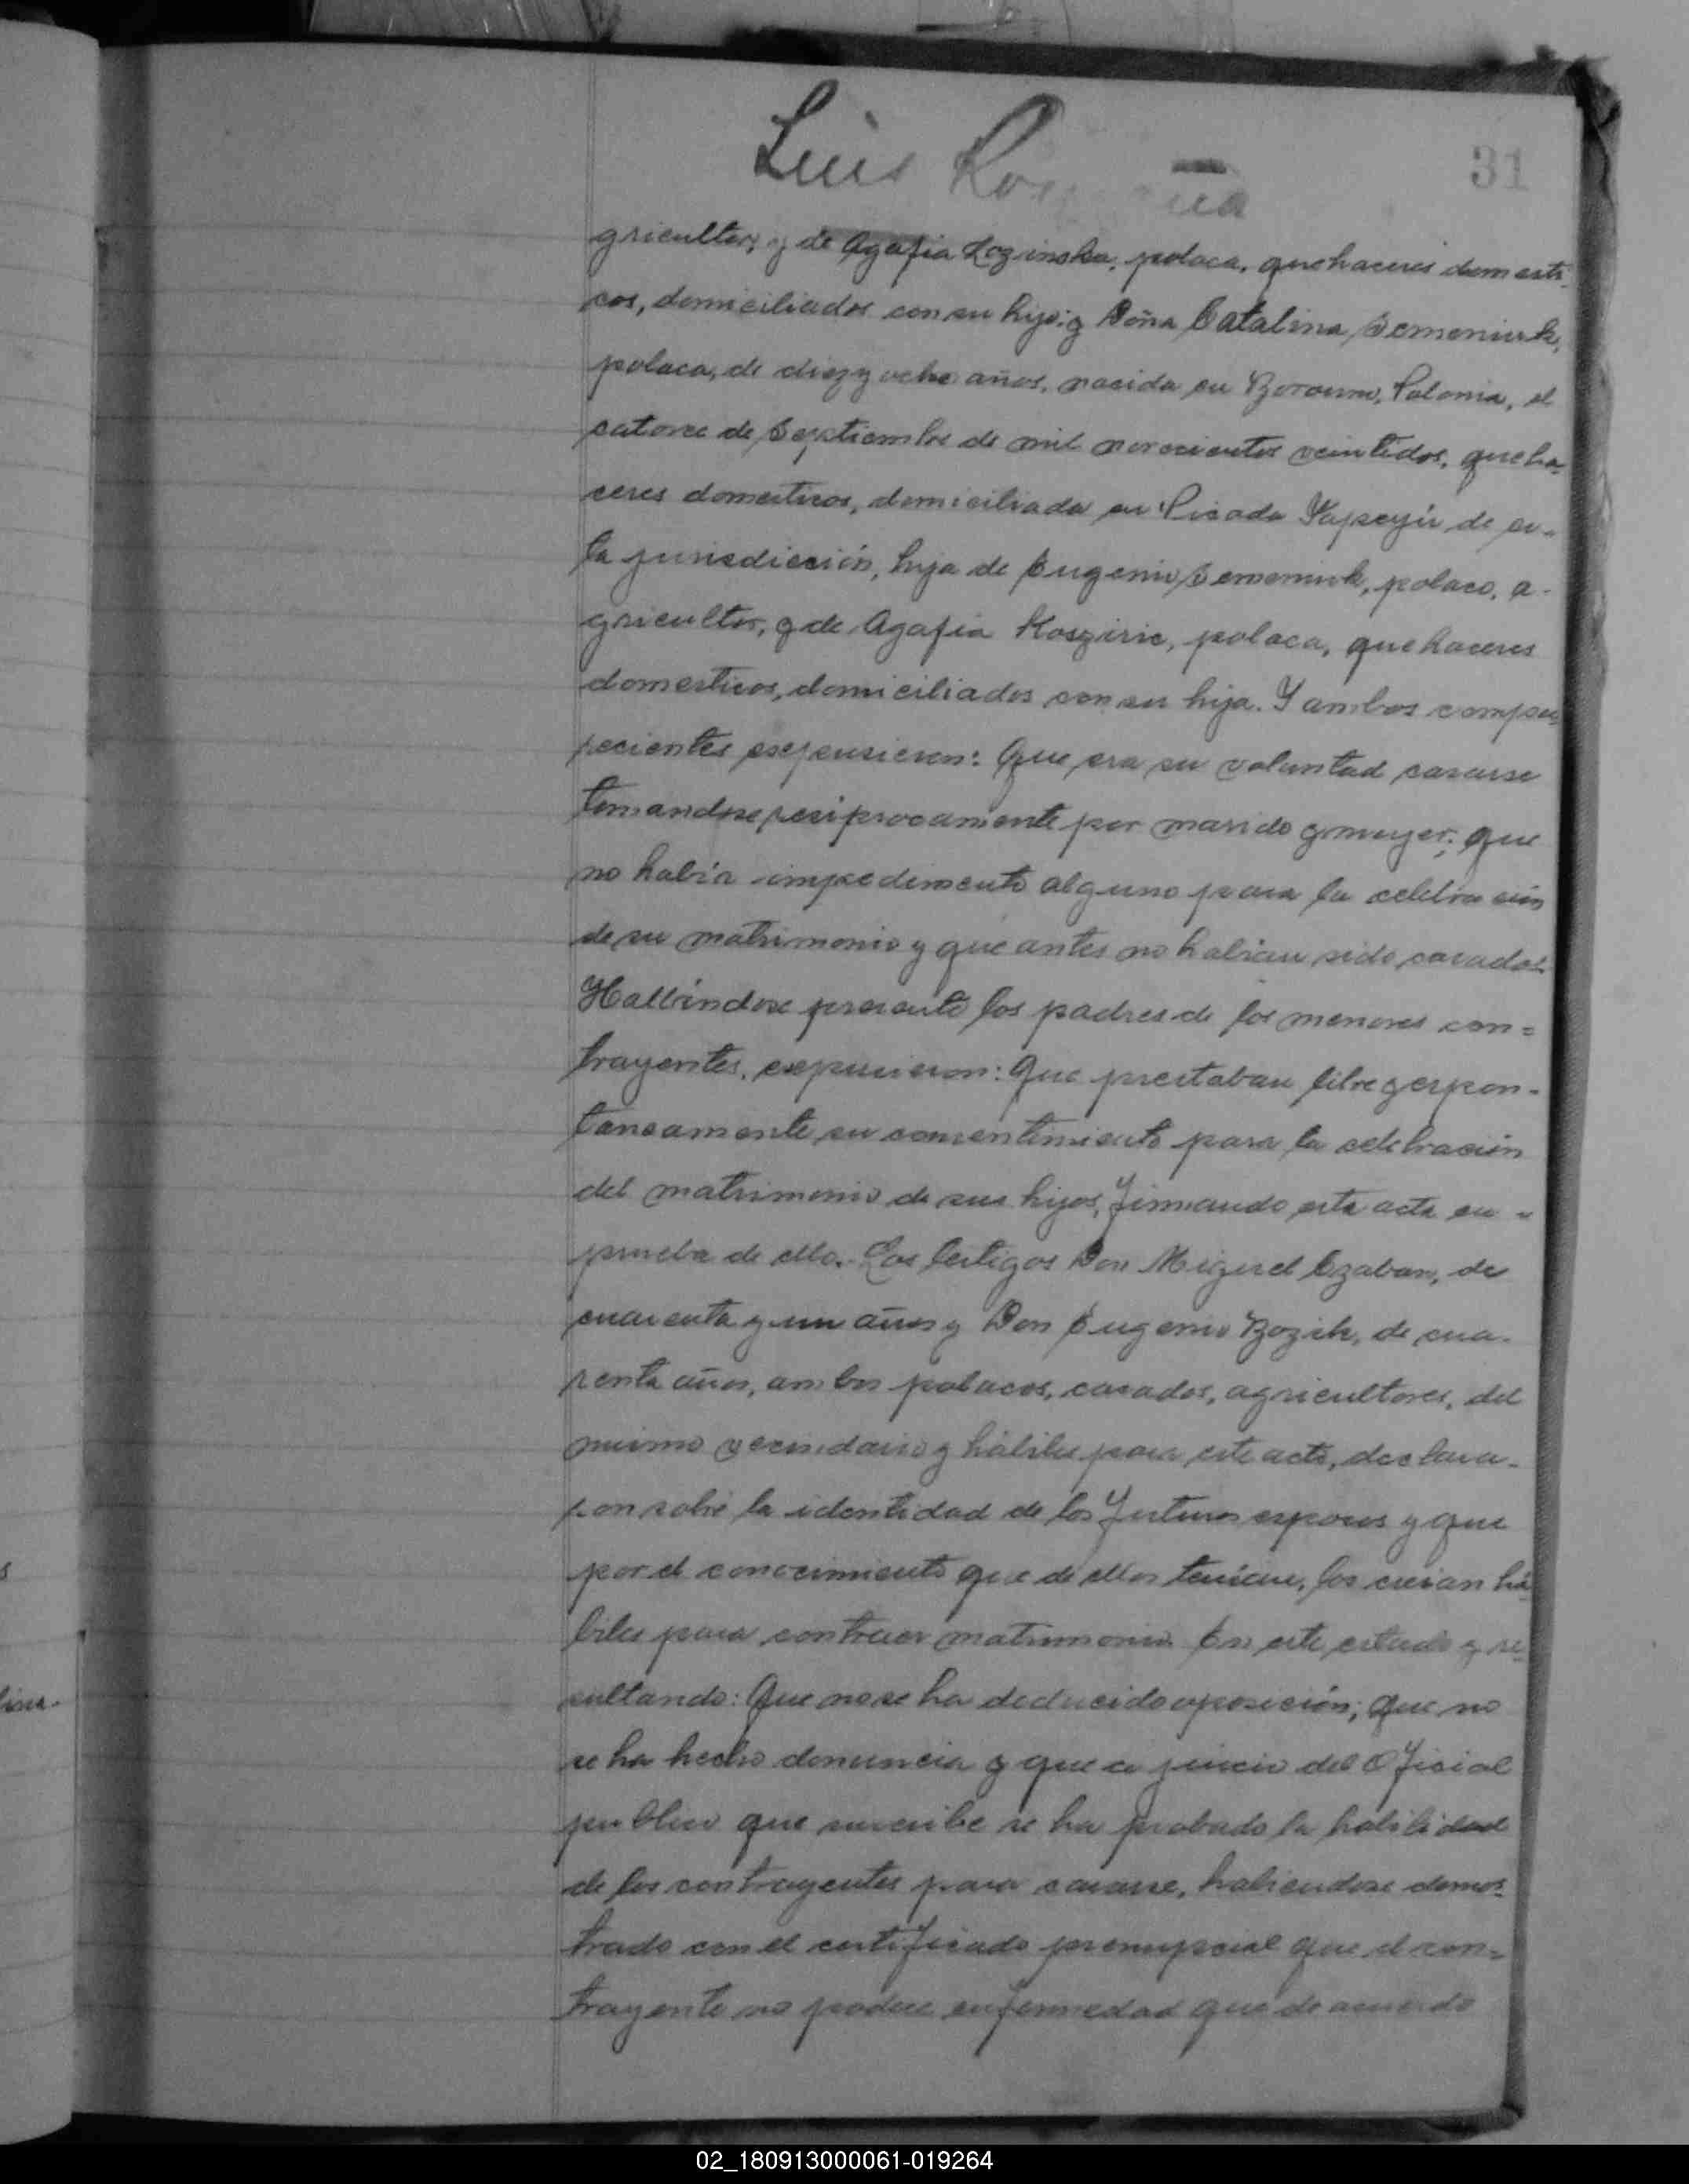 Luis
31
gricultor, y de Agafia Lozinska, polaca, quehaceres domesti-
cos, domiciliados con su hijo: y Doña Catalina Semeniuk,
polaca, de diez y ocho años, nacida en Polonia, el
catorce de Septiembre de mil novecientos veintidos, queha-
ceres domesticos, domiciliada en Picada Yapeyú de es-
ta jurisdicción, hija de Eugenio Semeniuk, polaco, a-
gricultor, y de Agafia polaca, quehaceres
domesticos, domiciliados con su hija. Y ambos compa-
recientes expusieron: Que era su voluntad casarse
tomandose reciprocamente por marido y mujer; que
no había impedimento alguno para la celebración
de su matrimonio y que antes no habían sido casados.
Hallándose presente los padres de los menores con=
trayentes, expusieron: Que prestaban libre y espon-
taneamente su consentimiento para la celebración
del matrimonio de sus hijos, firmando esta acta en -
prueba de ello.- Los testigos Don Miguel Czaban, de
cuarenta y un años y Don Eugenio Bozik, de cua-
renta años, ambos polacos, casados, agricultores, del
mismo vecindario y hábiles para este acto, declara-
ron sobre la identidad de los futuros esposos y que
por el conocimiento que de ellos tenían, los creian há-
biles para contraer matrimonio. En este estado y re-
sultando: Que no se ha deducido oposición; que no
se ha hecho denuncia y que a juicio del Oficial
publico que suscribe se ha probado la habilidad
de los contrayentes para casarse, habiendose demos-
trado con el certificado prenupcial que el con=
trayente no padece enfermedad que de acuerdo
lina-
02_180913000061-019264